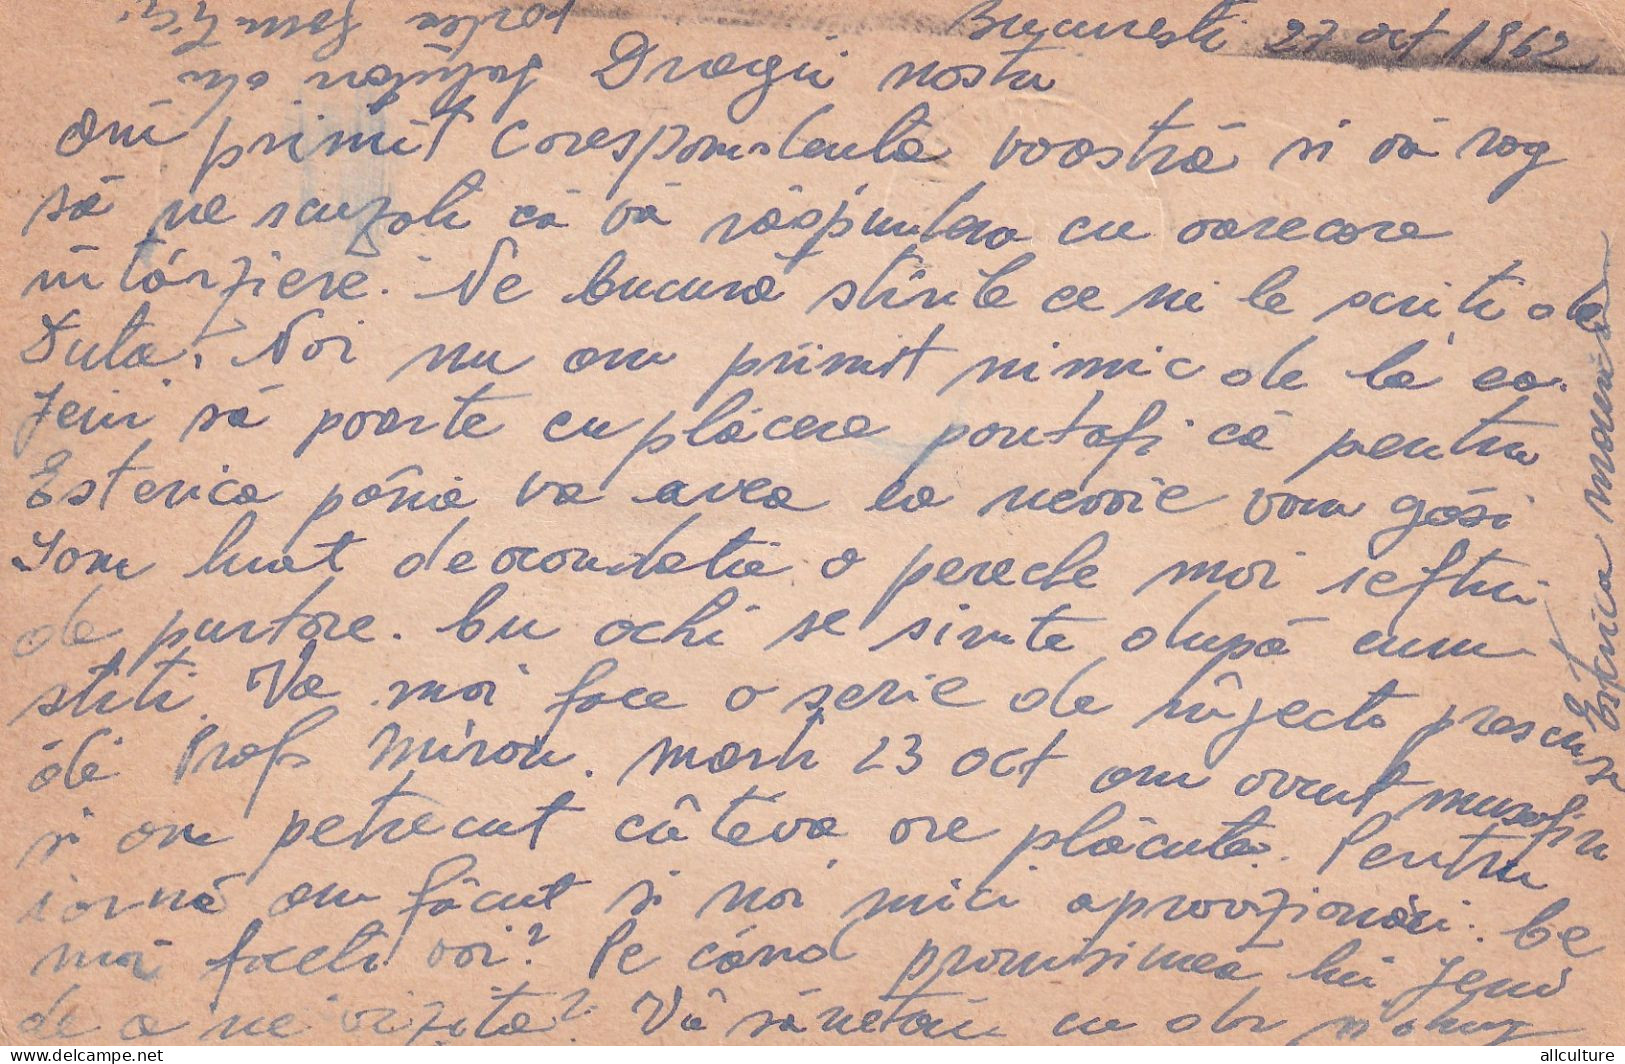 Bucuresti 27 oct 1962
Dragii nostri
Am primit corespondenta voastră si vă rog
să ne scuzati că vă răspundem cu oarecare
intârziere. Ne bucură stirile ce ni le scriti de
Suta. Noi nu am primit nimic de la ea.
Jeni să poarte cu plăcere pantofi că pentru
Esterica pâna va avea ea nevoie vom găsi
I-am luat deocamdată o pereche mai ieftini
de purtare. Cu ochi se simte după cum
stiti. Va mai face o serie de injecti prescrise
de Prof Miron. Marti 23 oct am avut musafiri
si am petrecut câteva ore plăcute. Pentru
iarnă am făcut si noi mici aprovizionări. Ce
mai faceti voi? Pe când promisimea lui Jeni
de a ne vizita? Vă sărutăm cu dor si
Esterica
allculture
delcampe.net